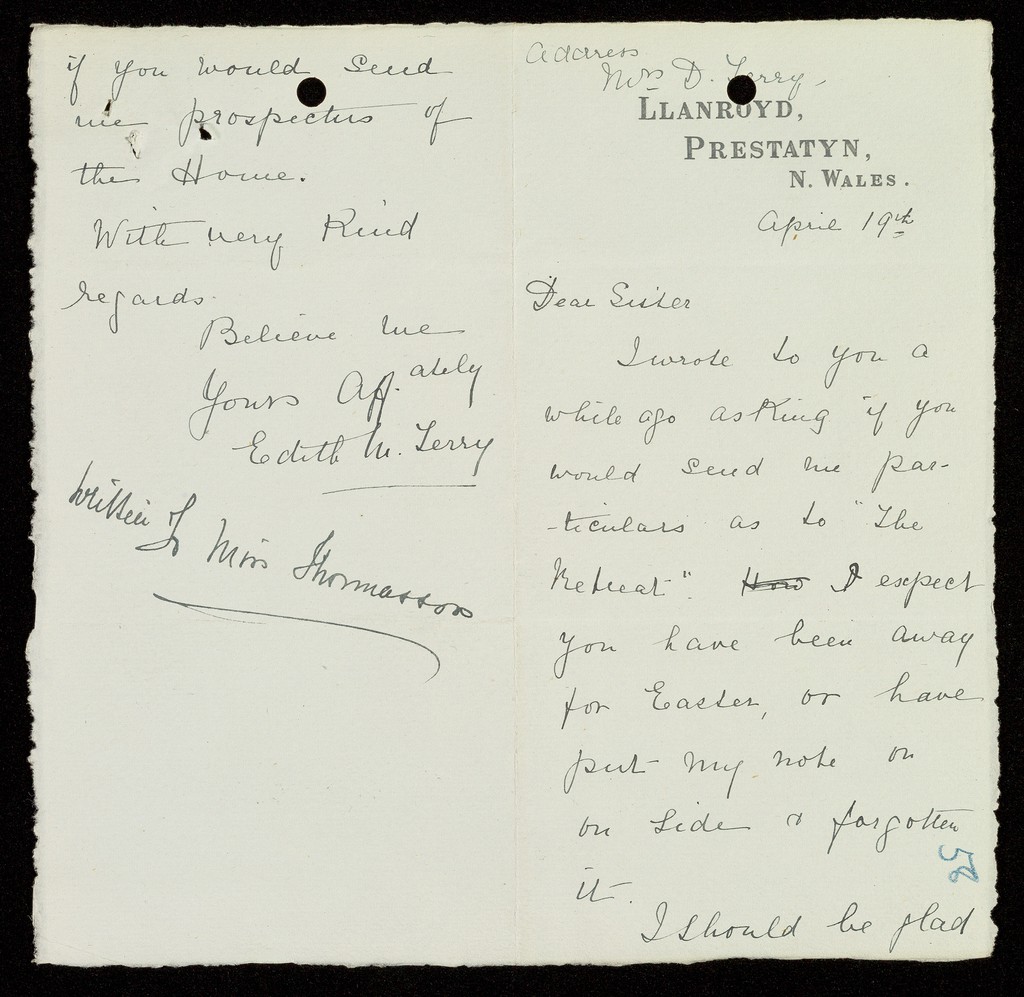 Address
Mrs D. Terry,
LLANROYD,
PRESTATYN,
N. WALES.
April 19th
Dear Sister
I wrote to you a
while ago asking if you
would send me par-
-ticulars as to "The
Retreat". How I expect
you have been away
for Easter, or have
put my note on
on side & forgotten
it.
I should be glad
58
if you would send
me prospectus of
the Home.
With very Kind
regards.
Believe me
Yours Aff.ately
Edith M. Terry
written to Miss Thomasson